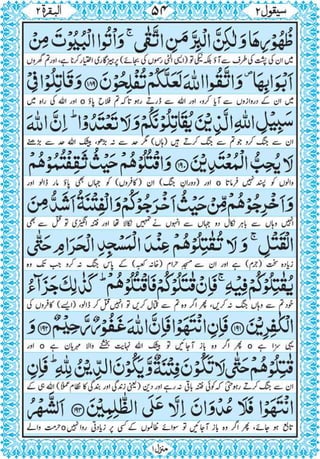 سیقول ٢ ٥٤ البقرة ٢
ظُهُوْرِهَا وَلٰكِنَّ الْبِرَّ مَنِ اتَّقٰى ۚ وَاْتُوا الْبُيُوْتَ مِنْ
ان کی پشت کی طرف سے آؤ بلکہ نیکی تو (ایسی الٹی رسموں کی بجائے) پرہیزگاری اختیار کرنا ہے، اور تم گھروں
اَبْوَابِهَا ۪ وَاتَّقُوا اللّٰهَ لَعَلَّكُمْ تُفْلِحُوْنَ ﴿١٨٩﴾ وَقَاتِلُوْا فِيْ
میں ان کے دروازوں سے آیا کرو، اور اللہ سے ڈرتے رہو تاکہ تم فلاح پاؤ o اور اللہ کی راہ میں
سَبِيْلِ اللّٰهِ الَّذِيْنَ يُقَاتِلُوْنَكُمْ وَلَا تَعْتَدُوْا ؕ اِنَّ اللّٰهَ
ان سے جنگ کرو جو تم سے جنگ کرتے ہیں (ہاں) مگر حد سے نہ بڑھو، بیشک اللہ حد سے بڑھنے
لَا يُحِبُّ الْمُعْتَدِيْنَ ﴿١٩٠﴾ وَاقْتُلُوْهُمْ حَيْثُ ثَقِفْتُمُوْهُمْ
والوں کو پسند نہیں فرماتا o اور (دورانِ جنگ) ان (کافروں) کو جہاں بھی پاؤ مار ڈالو اور
وَاَخْرِجُوْهُمْ مِّنْ حَيْثُ اَخْرَجُوْكُمْ وَالْفِتْنَةُ اَشَدُّ مِنَ
انہیں وہاں سے باہر نکال دو جہاں سے انہوں نے تمہیں نکالا تھا اور فتنہ انگیزی تو قتل سے بھی
الْقَتْلِ ۚ وَلَا تُقٰتِلُوْهُمْ عِنْدَ الْمَسْجِدِ الْحَرَامِ حَتّٰى
زیادہ سخت (جرم) ہے اور ان سے مسجدِ حرام (خانہ کعبہ) کے پاس جنگ نہ کرو جب تک وہ
يُقٰتِلُوْكُمْ فِيْهِ ۚ فَاِنْ قٰتَلُوْكُمْ فَاقْتُلُوْهُمْ ؕ كَذٰلِكَ جَزَآءُ
خود تم سے وہاں جنگ نہ کریں، پھر اگر وہ تم سے قتال کریں تو انہیں قتل کر ڈالو، (ایسے) کافروں کی
الْكٰفِرِيْنَ ﴿١٩١﴾ فَاِنِ انْتَهَوْا فَاِنَّ اللّٰهَ غَفُوْرٌ رَّحِيْمٌ ﴿١٩٢﴾ وَ
یہی سزا ہے o پھر اگر وہ باز آجائیں تو بیشک اللہ نہایت بخشنے والا مہربان ہے o اور
قٰتِلُوْهُمْ حَتّٰى لَا تَكُوْنَ فِتْنَةٌ وَّيَكُوْنَ الدِّيْنُ لِلّٰهِ ؕ فَاِنِ
ان سے جنگ کرتے رہو حتیٰ کہ کوئی فتنہ باقی نہ رہے اور دین (یعنی زندگی اور بندگی کا نظام عملاً) اللہ ہی کے
انْتَهَوْا فَلَا عُدْوَانَ اِلَّا عَلَى الظّٰلِمِيْنَ ﴿١٩٣﴾ اَلشَّهْرُ
تابع ہو جائے، پھر اگر وہ باز آجائیں تو سوائے ظالموں کے کسی پر زیادتی روا نہیں o حرمت والے
منزل ١